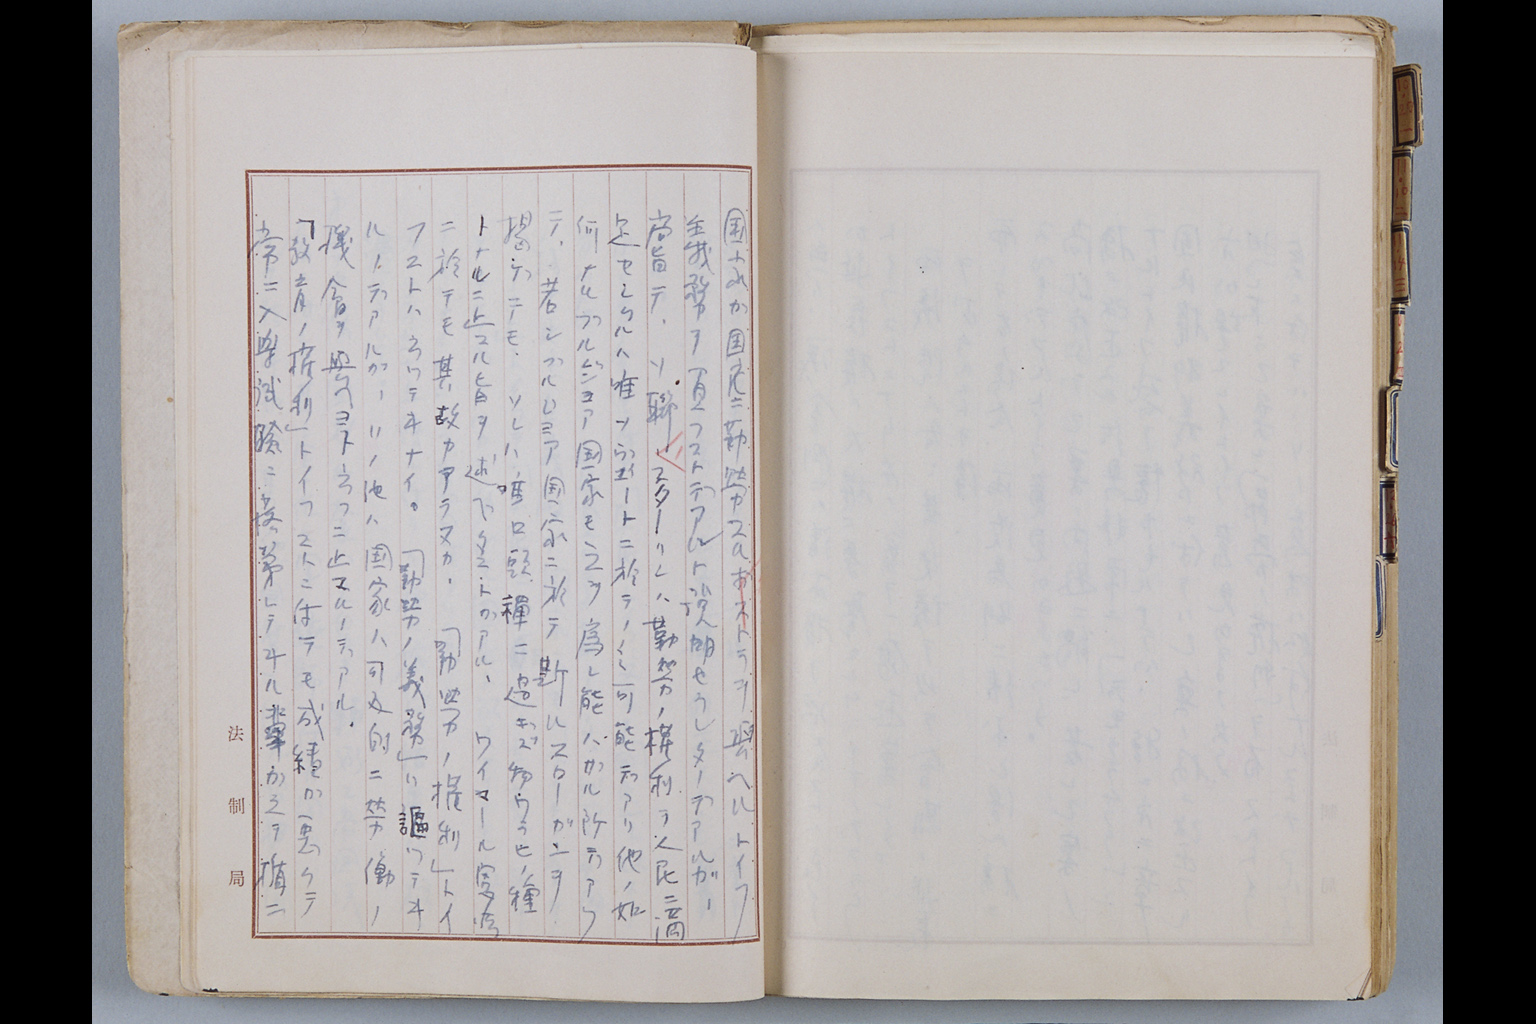 国家が国民ニ勤労スルオストヲ与ヘルトイフ
義務ヲ負フストデアルト説明セラレターデアルガ、
当旨デ、ソ聯ノスターリンハ勤労ノ権利ヲ人民ニ満
足セシムルハ唯ソヴエートニ於テノミ可能デアリ他ノ如
何ナルブルジョア国家モ之ヲ為シ能ハザル所デアツ
テ、若シブルジョア国家ニ於テ斯ルスローガンヲ
掲ゲテモ、ソレハ唯口頭禅ニ過ギズ
トナルニ止マル旨ヲ述ベタストガアル、ワイマール憲法
ニ於テモ其ノ故カアラヌカ、「勤労ノ権利」トイ
フストハ云ツテヰナイ。「勤労ノ義務」ハ謳ツテヰ
ルノデアルガ、ソノ他ハ国家ハ可及的ニ労働ノ
機会ヲ与ヘヨト云フニ止マルノデアル。
「教育ノ権利」トイフストニ付テモ成績ガ悪クテ
常ニ入学試験ニ落第シテヰル輩ガ之ヲ楯ニ
法制局